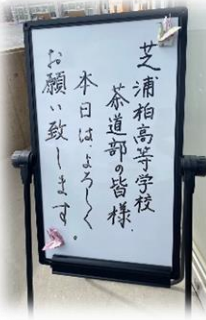 芝浦柏高等学校
茶道部の皆様、
本日は、よろしく
お願い致します。